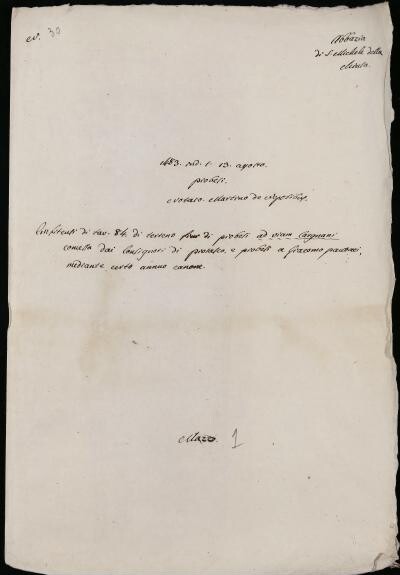 N. 30
Abbazia
di S. Michele della
Chiusa.
1483. ind. 1. 13. agosto.
probesi.
Notaro Martino de
Enfiteusi di tav. 84. di terreno fine di probesi ad viam Cargnani
concessa dai Consignori di probesi a Giacomo
mediante certo annuo canone.
Mazzo. 1